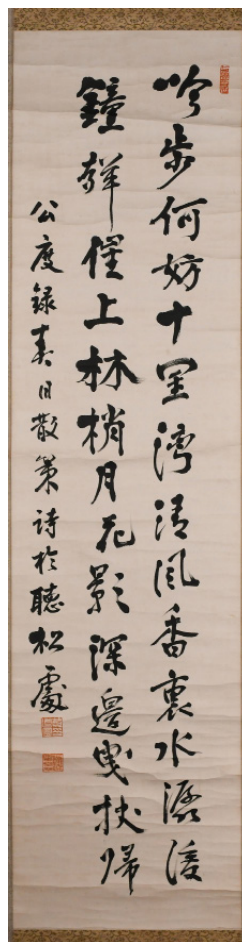 吟步何妨十里灣清風香裏水潺湲
鐘聲催上林梢月花影深邊曳杖歸
公度録春日散策詩於聽松處